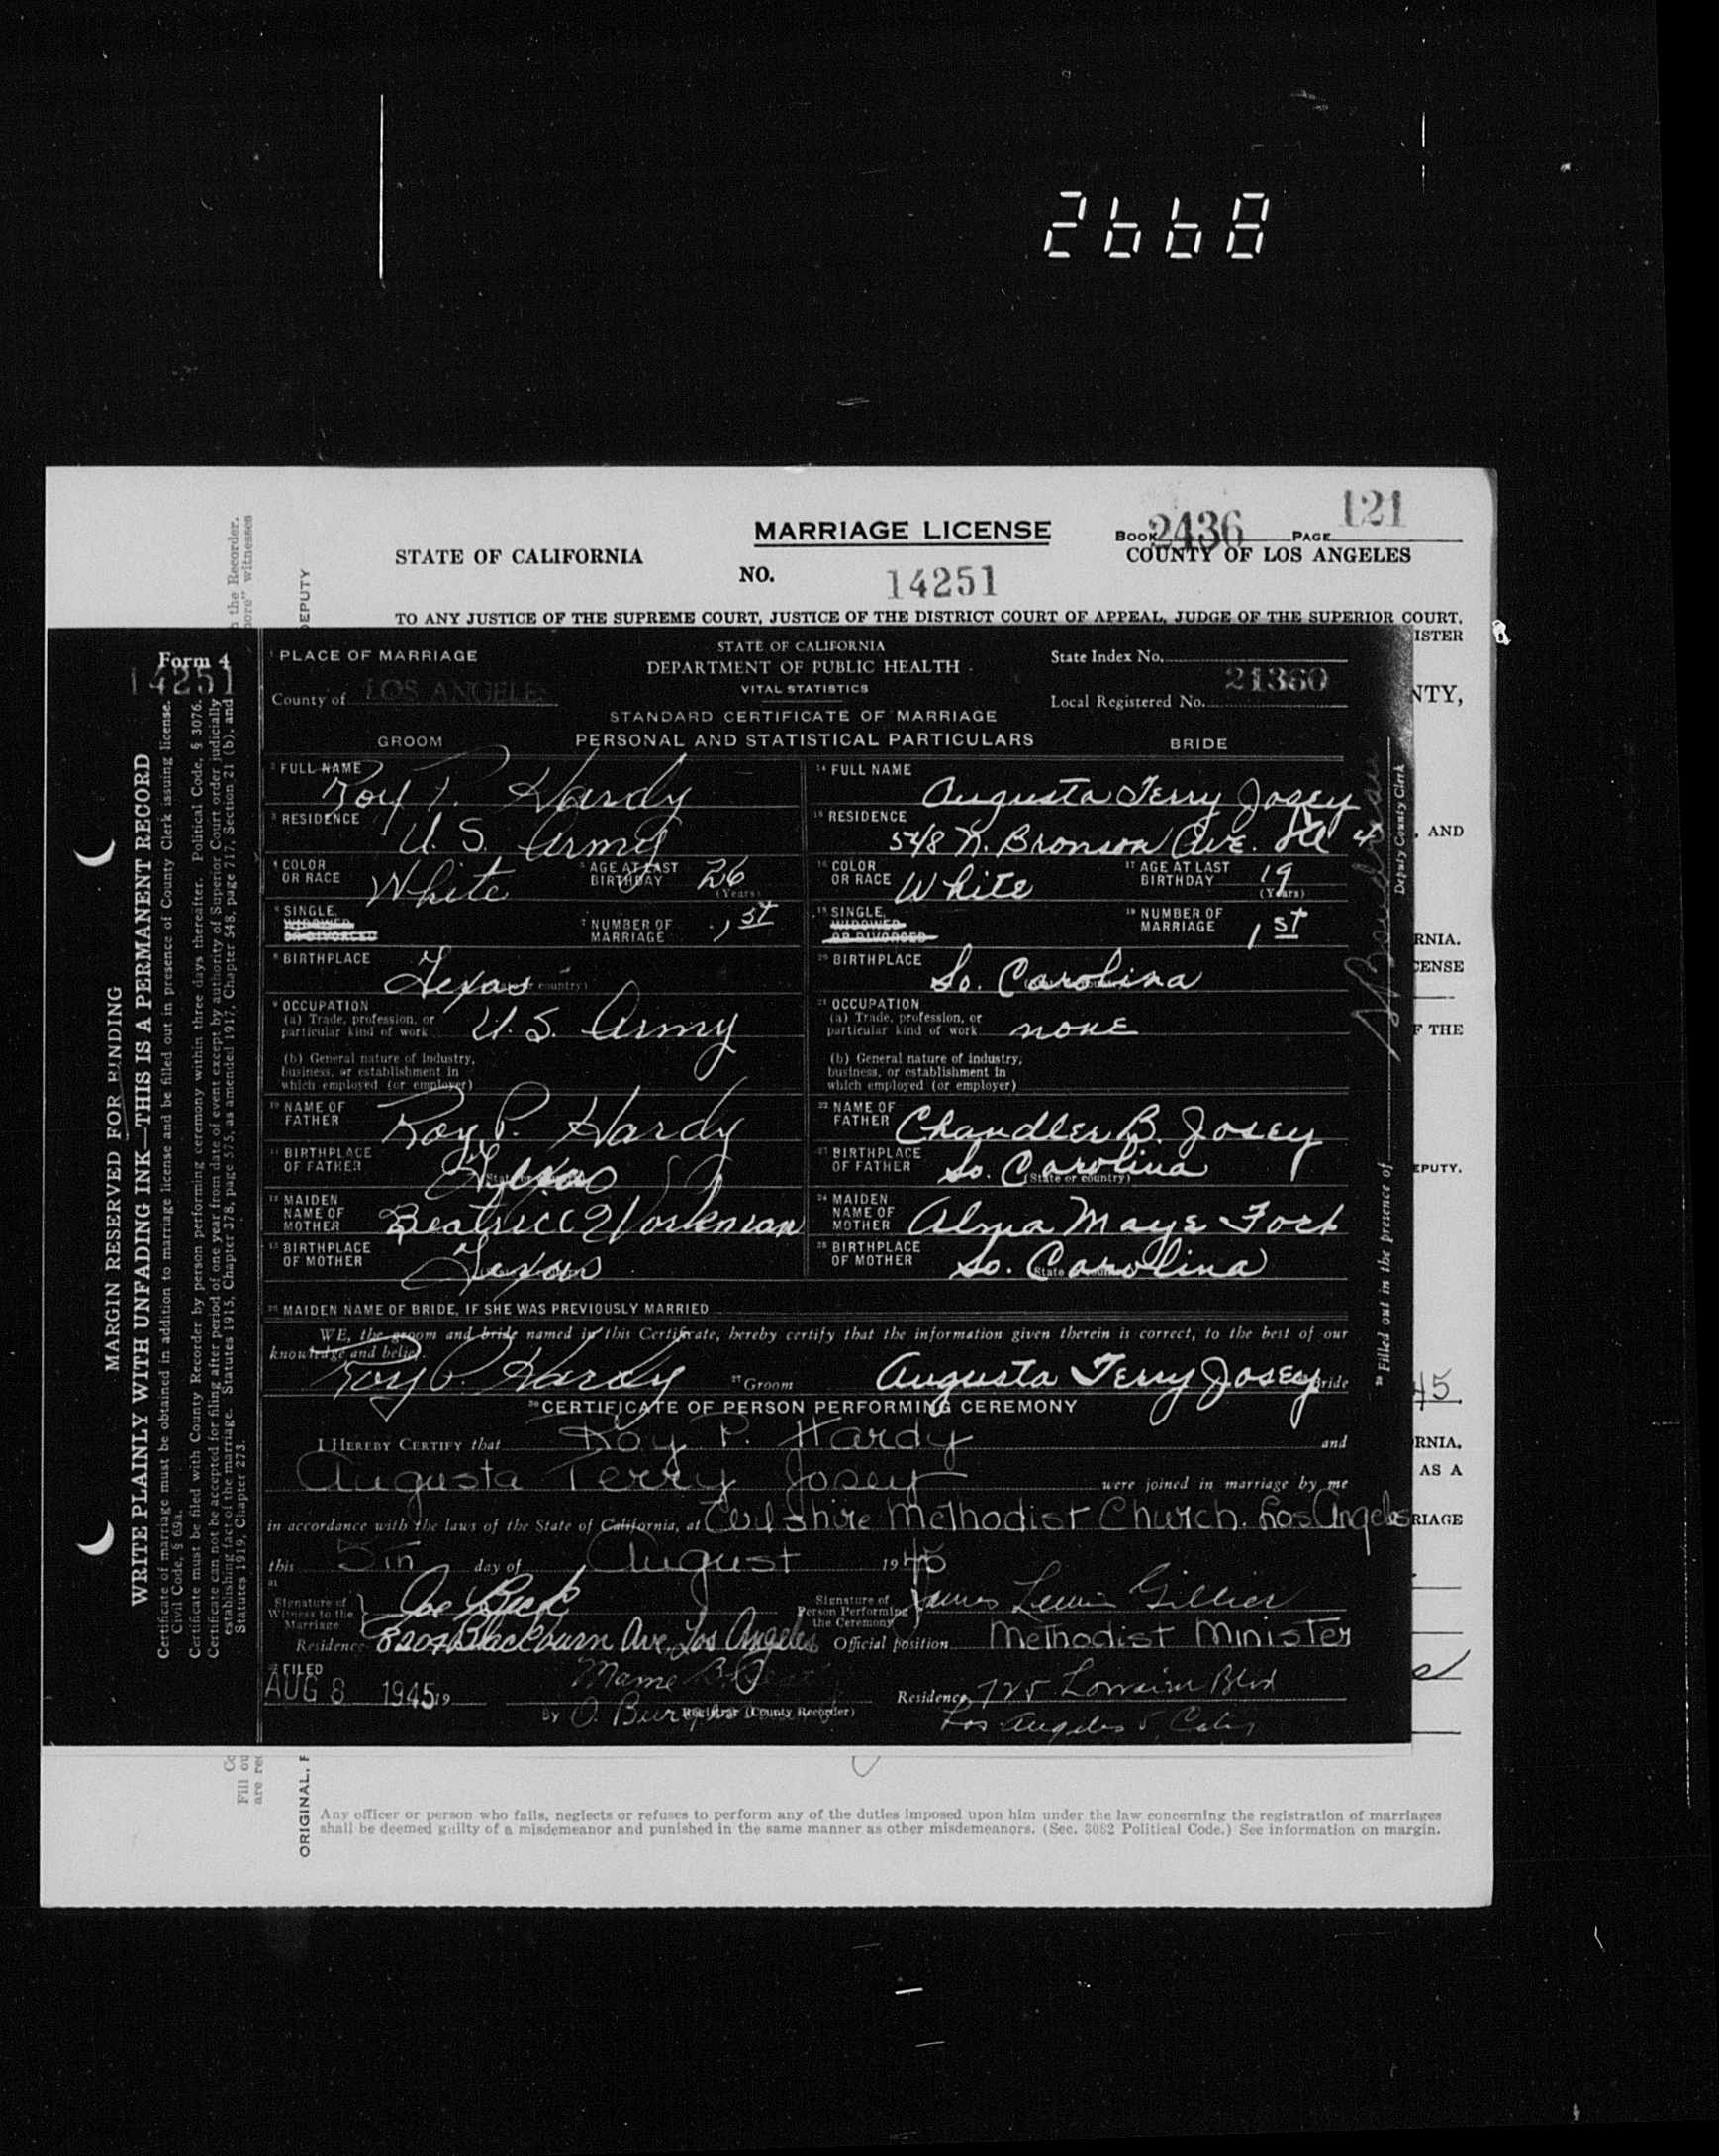 2668
MARRIAGE LICENSE
BOOK 2436 PAGE 121
STATE OF CALIFORNIA
COUNTY OF LOS ANGELES
NO. 14251
TO ANY JUSTICE OF THE SUPREME COURT, JUSTICE OF THE DISTRICT COURT OF APPEAL, JUDGE OF THE SUPERIOR COURT,
ISTER
NTY,
, AND
RNIA.
CENSE
F THE
EPUTY.
45
RNIA,
AS A
RIAGE
the Recorder.
witnesses
DEPUTY
Form 4
14251
MARGIN RESERVED FOR BINDING
WRITE PLAINLY WITH UNFADING INK—THIS IS A PERMANENT RECORD
Certificate of marriage must be obtained in addition to marriage license and be filled out in presence of County Clerk issuing license.
Civil Code, § 69a.
Certificate must be filed with County Recorder by person performing ceremony within three days thereafter. Political Code, § 3076.
Certificate can not be accepted for filing after period of one year from date of event except by authority of Superior Court order judicially
establishing fact of the marriage. Statutes 1915, Chapter 378, page 575, as amended 1917, Chapter 548, page 717, Section 21 (b), and
Statutes 1919, Chapter 273.
1 PLACE OF MARRIAGE
County of LOS ANGELES
STATE OF CALIFORNIA
DEPARTMENT OF PUBLIC HEALTH
VITAL STATISTICS
STANDARD CERTIFICATE OF MARRIAGE
State Index No.
Local Registered No. 21360
GROOM PERSONAL AND STATISTICAL PARTICULARS BRIDE
2 FULL NAME Roy P. Hardy
14 FULL NAME Augusta Terry Josey
3 RESIDENCE U. S. Army
15 RESIDENCE 548 N. Bronson Ave. 4
4 COLOR OR RACE White 5 AGE AT LAST BIRTHDAY 26 (Years)
16 COLOR OR RACE White 17 AGE AT LAST BIRTHDAY 19 (Years)
6 SINGLE, WIDOWED OR DIVORCED 7 NUMBER OF MARRIAGE 1st
18 SINGLE, WIDOWED OR DIVORCED 19 NUMBER OF MARRIAGE 1st
8 BIRTHPLACE Texas
20 BIRTHPLACE So. Carolina
9 OCCUPATION
(a) Trade, profession, or
particular kind of work U. S. Army
21 OCCUPATION
(a) Trade, profession, or
particular kind of work none
(b) General nature of industry,
business, or establishment in
which employed (or employer)
(b) General nature of industry,
business, or establishment in
which employed (or employer)
10 NAME OF FATHER Roy P. Hardy
22 NAME OF FATHER Chandler B. Josey
11 BIRTHPLACE OF FATHER Texas
BIRTHPLACE OF FATHER So. Carolina
(State or country)
12 MAIDEN NAME OF MOTHER Beatrice Workman
24 MAIDEN NAME OF MOTHER Alma Maye
13 BIRTHPLACE OF MOTHER Texas
25 BIRTHPLACE OF MOTHER So. Carolina
26 MAIDEN NAME OF BRIDE, IF SHE WAS PREVIOUSLY MARRIED
WE, the groom and bride named in this Certificate, hereby certify that the information given therein is correct, to the best of our
knowledge and belief.
Roy P. Hardy 27 Groom Augusta Terry Josey Bride
CERTIFICATE OF PERSON PERFORMING CEREMONY
I HEREBY CERTIFY that Roy P. Hardy and
Augusta Terry Josey were joined in marriage by me
in accordance with the laws of the State of California, at Wilshire Methodist Church. Los Angeles
this 5th day of August 1945
Signature of Witness to the Marriage Joe Beck
Signature of Person Performing the Ceremony James Lewis
Residence Blackburn Ave, Los Angeles Official position Methodist Minister
FILED
AUG 8 1945 19
Mame B. Beatty
Residence 725 Lorraine Blvd
By O. Registrar (County Recorder)
Los Angeles 5, Calif
Filled out in the presence of
Deputy County Clerk
ORIGINAL,
Fill ou
are re
Any officer or person who fails, neglects or refuses to perform any of the duties imposed upon him under the law concerning the registration of marriages
shall be deemed guilty of a misdemeanor and punished in the same manner as other misdemeanors. (Sec. 3082 Political Code.) See information on margin.